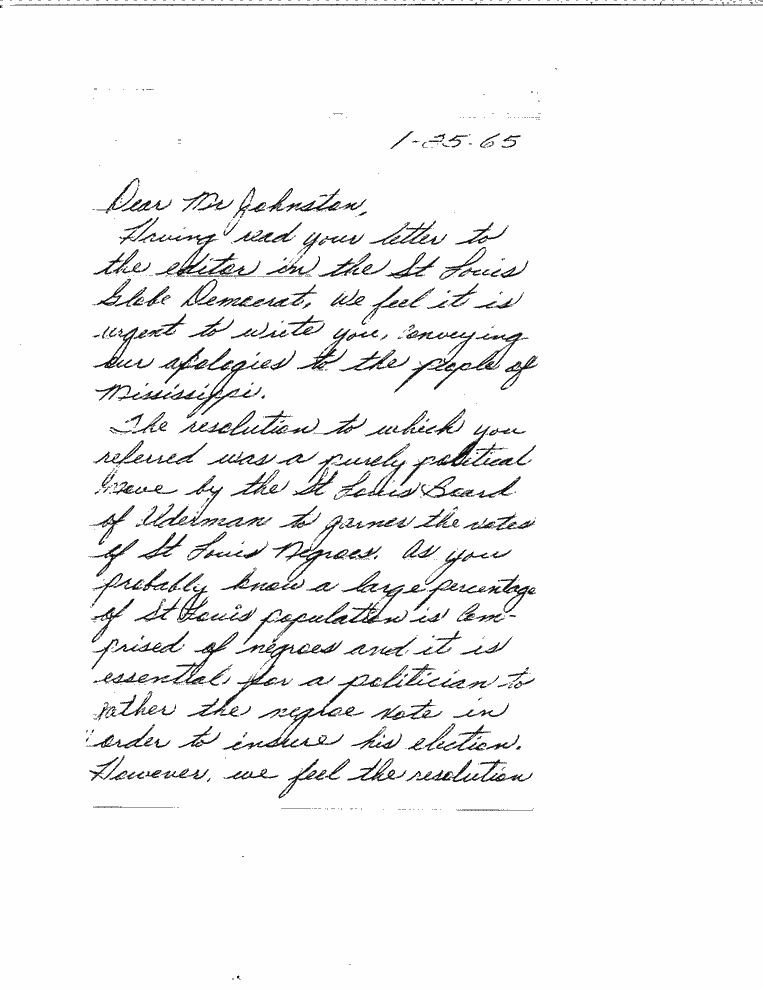 1-25-65
Dear Mr Johnston,
Having read your letter to
the editor in the St Louis
Globe Democrat, we feel it is
urgent to write you, conveying
our apologies to the people of
Mississippi.
The resolution to which you
referred was a purely political
move by the St Louis Board
of Alderman to garner the votes
of St Louis Negroes. As you
probably know a large percentage
of St Louis population is com-
prised of negroes and it is
essential for a politician to
gather the negroe vote in
order to insure his election.
However, we feel the resolution